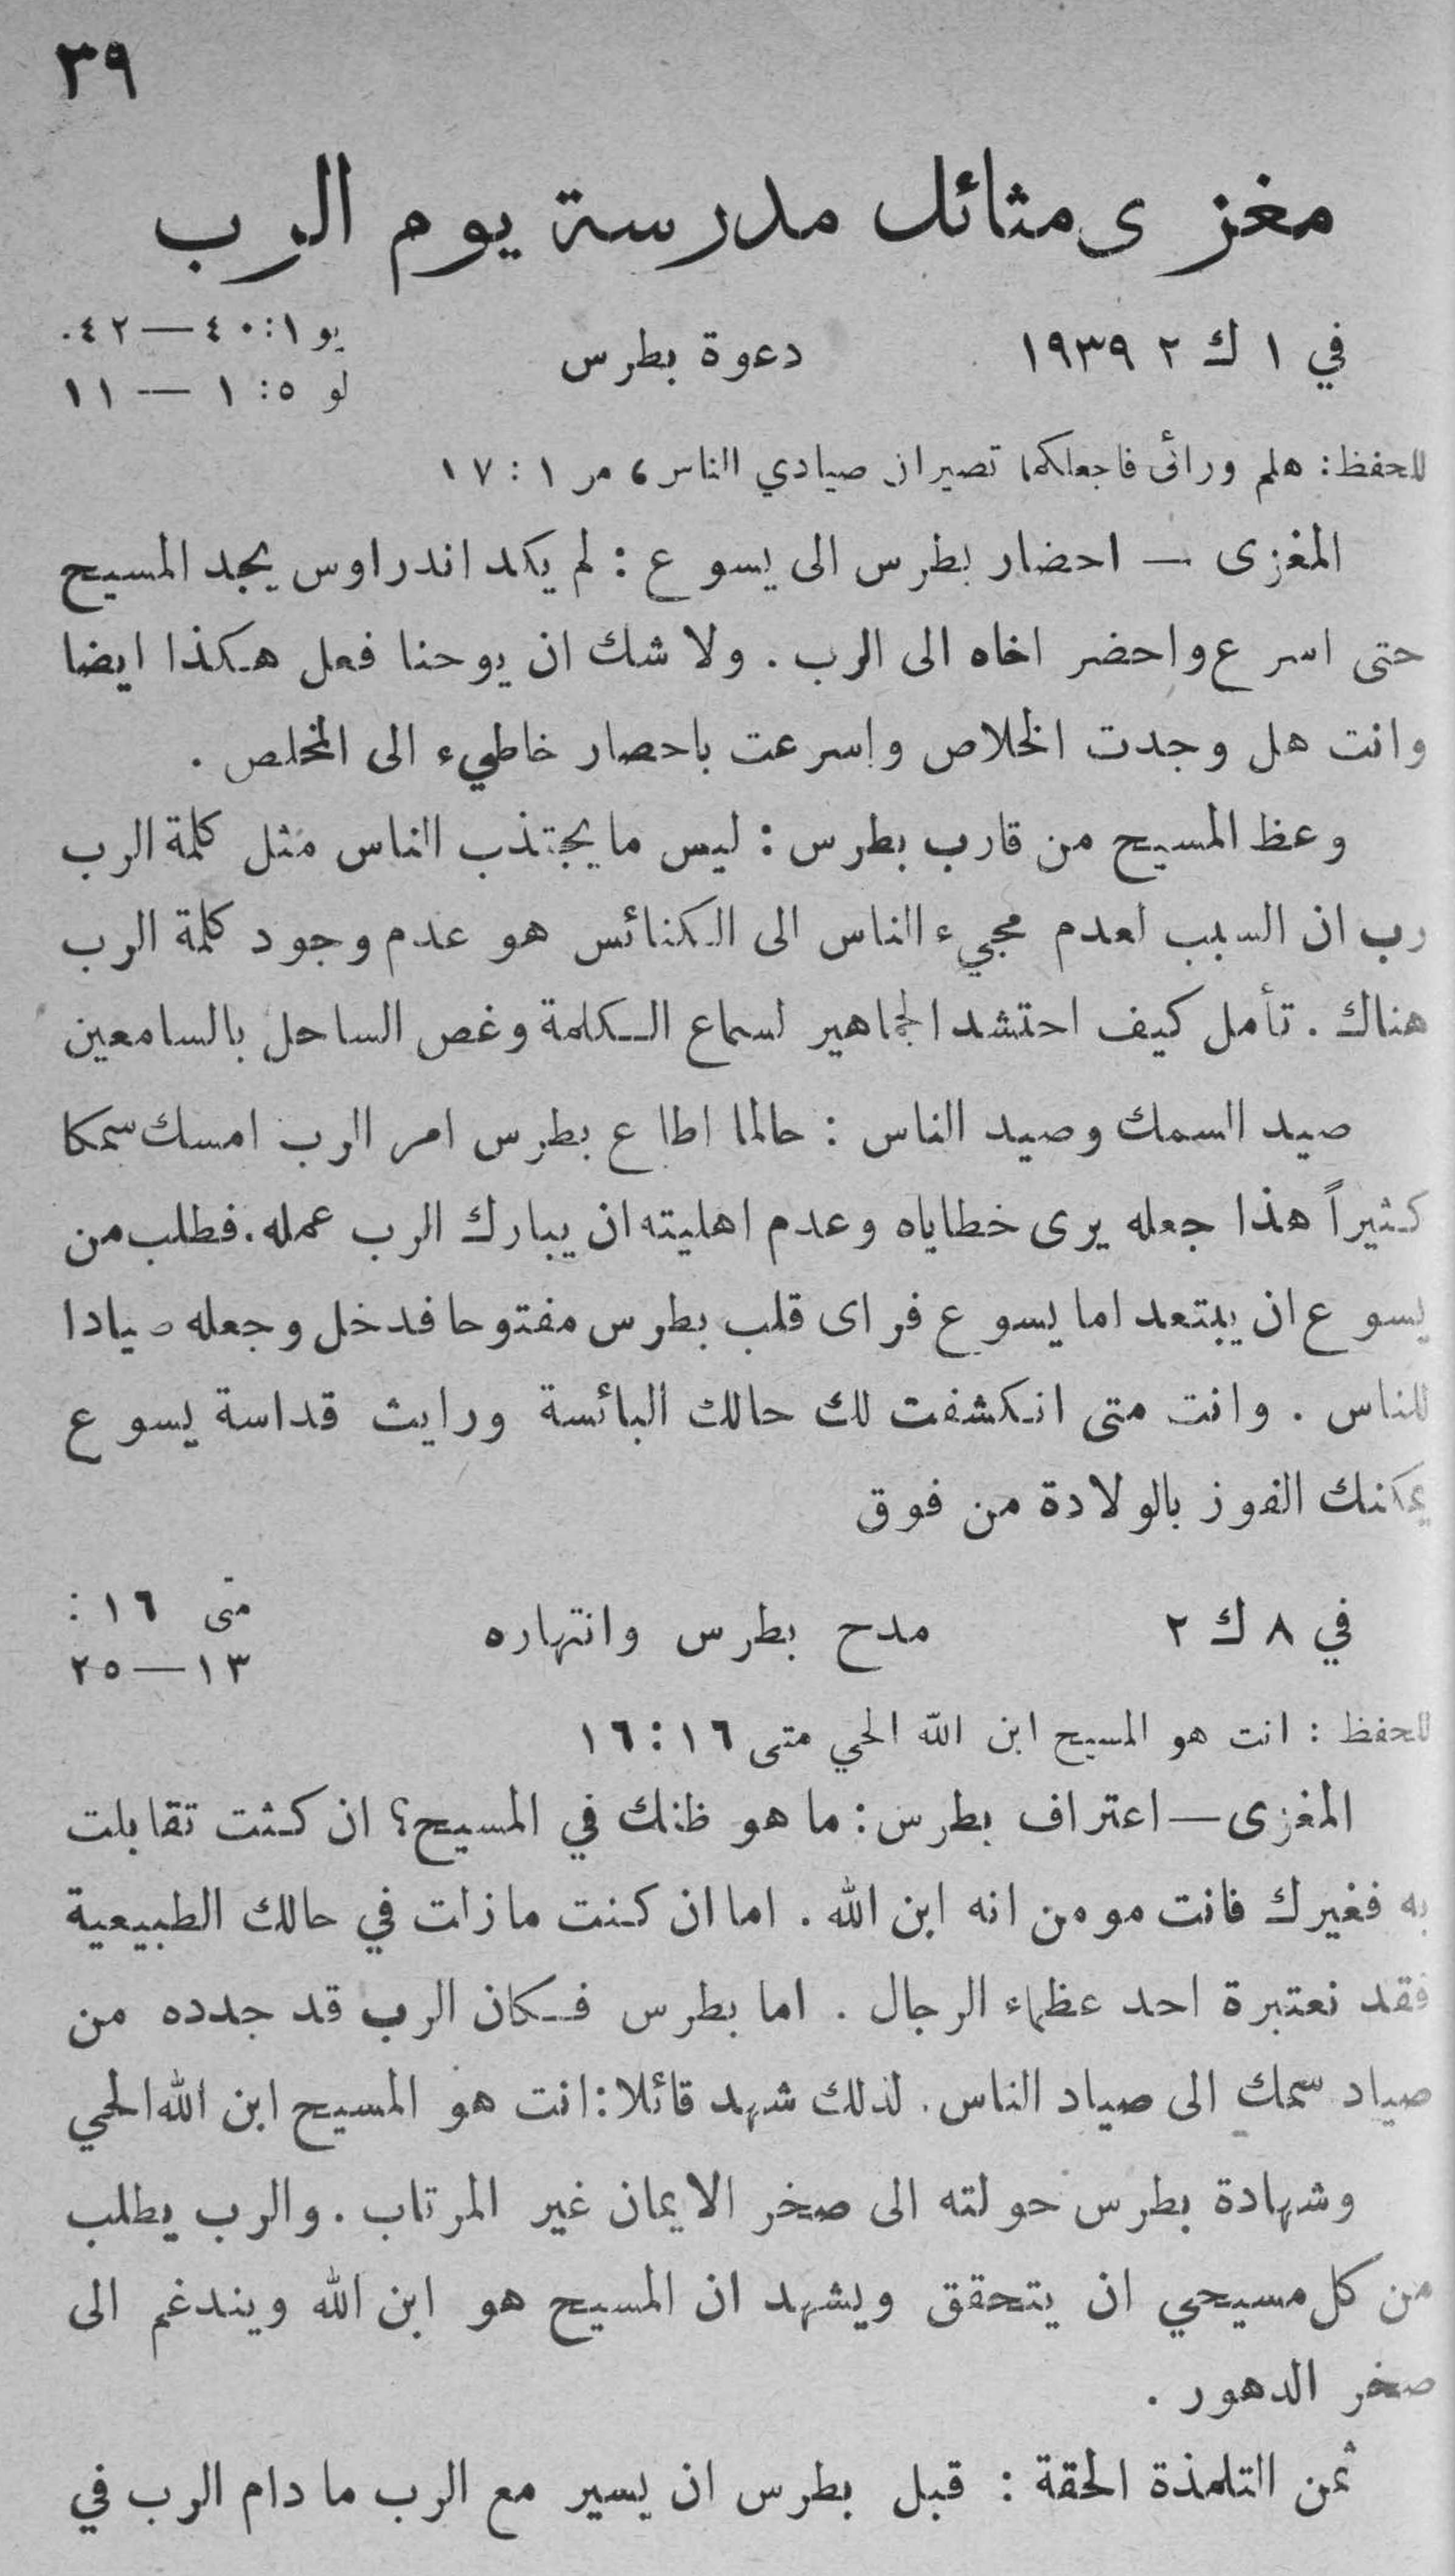 ٣٩
مغزى مثائل مدرسة يوم الرب
في ١ ك ٢ ١٩٣٩ دعوة بطرس يو ١: ٤٠—٤٢.
لو ٥: ١—١١
للحفظ: هلم ورائى فاجعلكما تصيران صيادي الناس، مر ١: ١٧
المغزى — احضار بطرس الى يسوع: لم يكد اندراوس يجد المسيح
حتى اسرع واحضر اخاه الى الرب. ولا شك ان يوحنا فعل هكذا ايضا
وانت هل وجدت الخلاص واسرعت باحصار خاطيء الى المخلص.
وعظ المسيح من قارب بطرس: ليس ما يجتذب الناس مثل كلمة الرب
رب ان السبب لعدم مجيء الناس الى الكنائس هو عدم وجود كلمة الرب
هناك. تأمل كيف احتشد الجماهير لسماع الكلمة وغص الساحل بالسامعين
صيد السمك وصيد الناس: حالما اطاع بطرس امر الرب امسك سمكا
كثيراً هذا جعله يرى خطاياه وعدم اهليته ان يبارك الرب عمله. فطلب من
يسوع ان يبتعد اما يسوع فراى قلب بطرس مفتوحا فدخل وجعله صيادا
للناس. وانت متى انكشفت لك حالك البائسة ورايث قداسة يسوع
يمكنك الفوز بالولادة من فوق
في ٨ ك ٢ مدح بطرس وانتهاره متى ١٦:
١٣—٢٥
للحفظ: انت هو المسيح ابن الله الحي متى ١٦: ١٦
المغزى — اعتراف بطرس: ما هو ظنك في المسيح؟ ان كثت تقابلت
به فغيرك فانت مومن انه ابن الله. اما ان كنت ما زلت في حالك الطبيعية
فقد نعتبرة احد عظماء الرجال. اما بطرس فكان الرب قد جدده من
صياد سمك الى صياد الناس. لذلك شهد قائلا: انت هو المسيح ابن الله الحي
وشهادة بطرس حولته الى صخر الايمان غير المرتاب. والرب يطلب
من كل مسيحي ان يتحقق ويشهد ان المسيح هو ابن الله ويندغم الى
صخر الدهور.
ثمن التلمذة الحقة: قبل بطرس ان يسير مع الرب ما دام الرب في